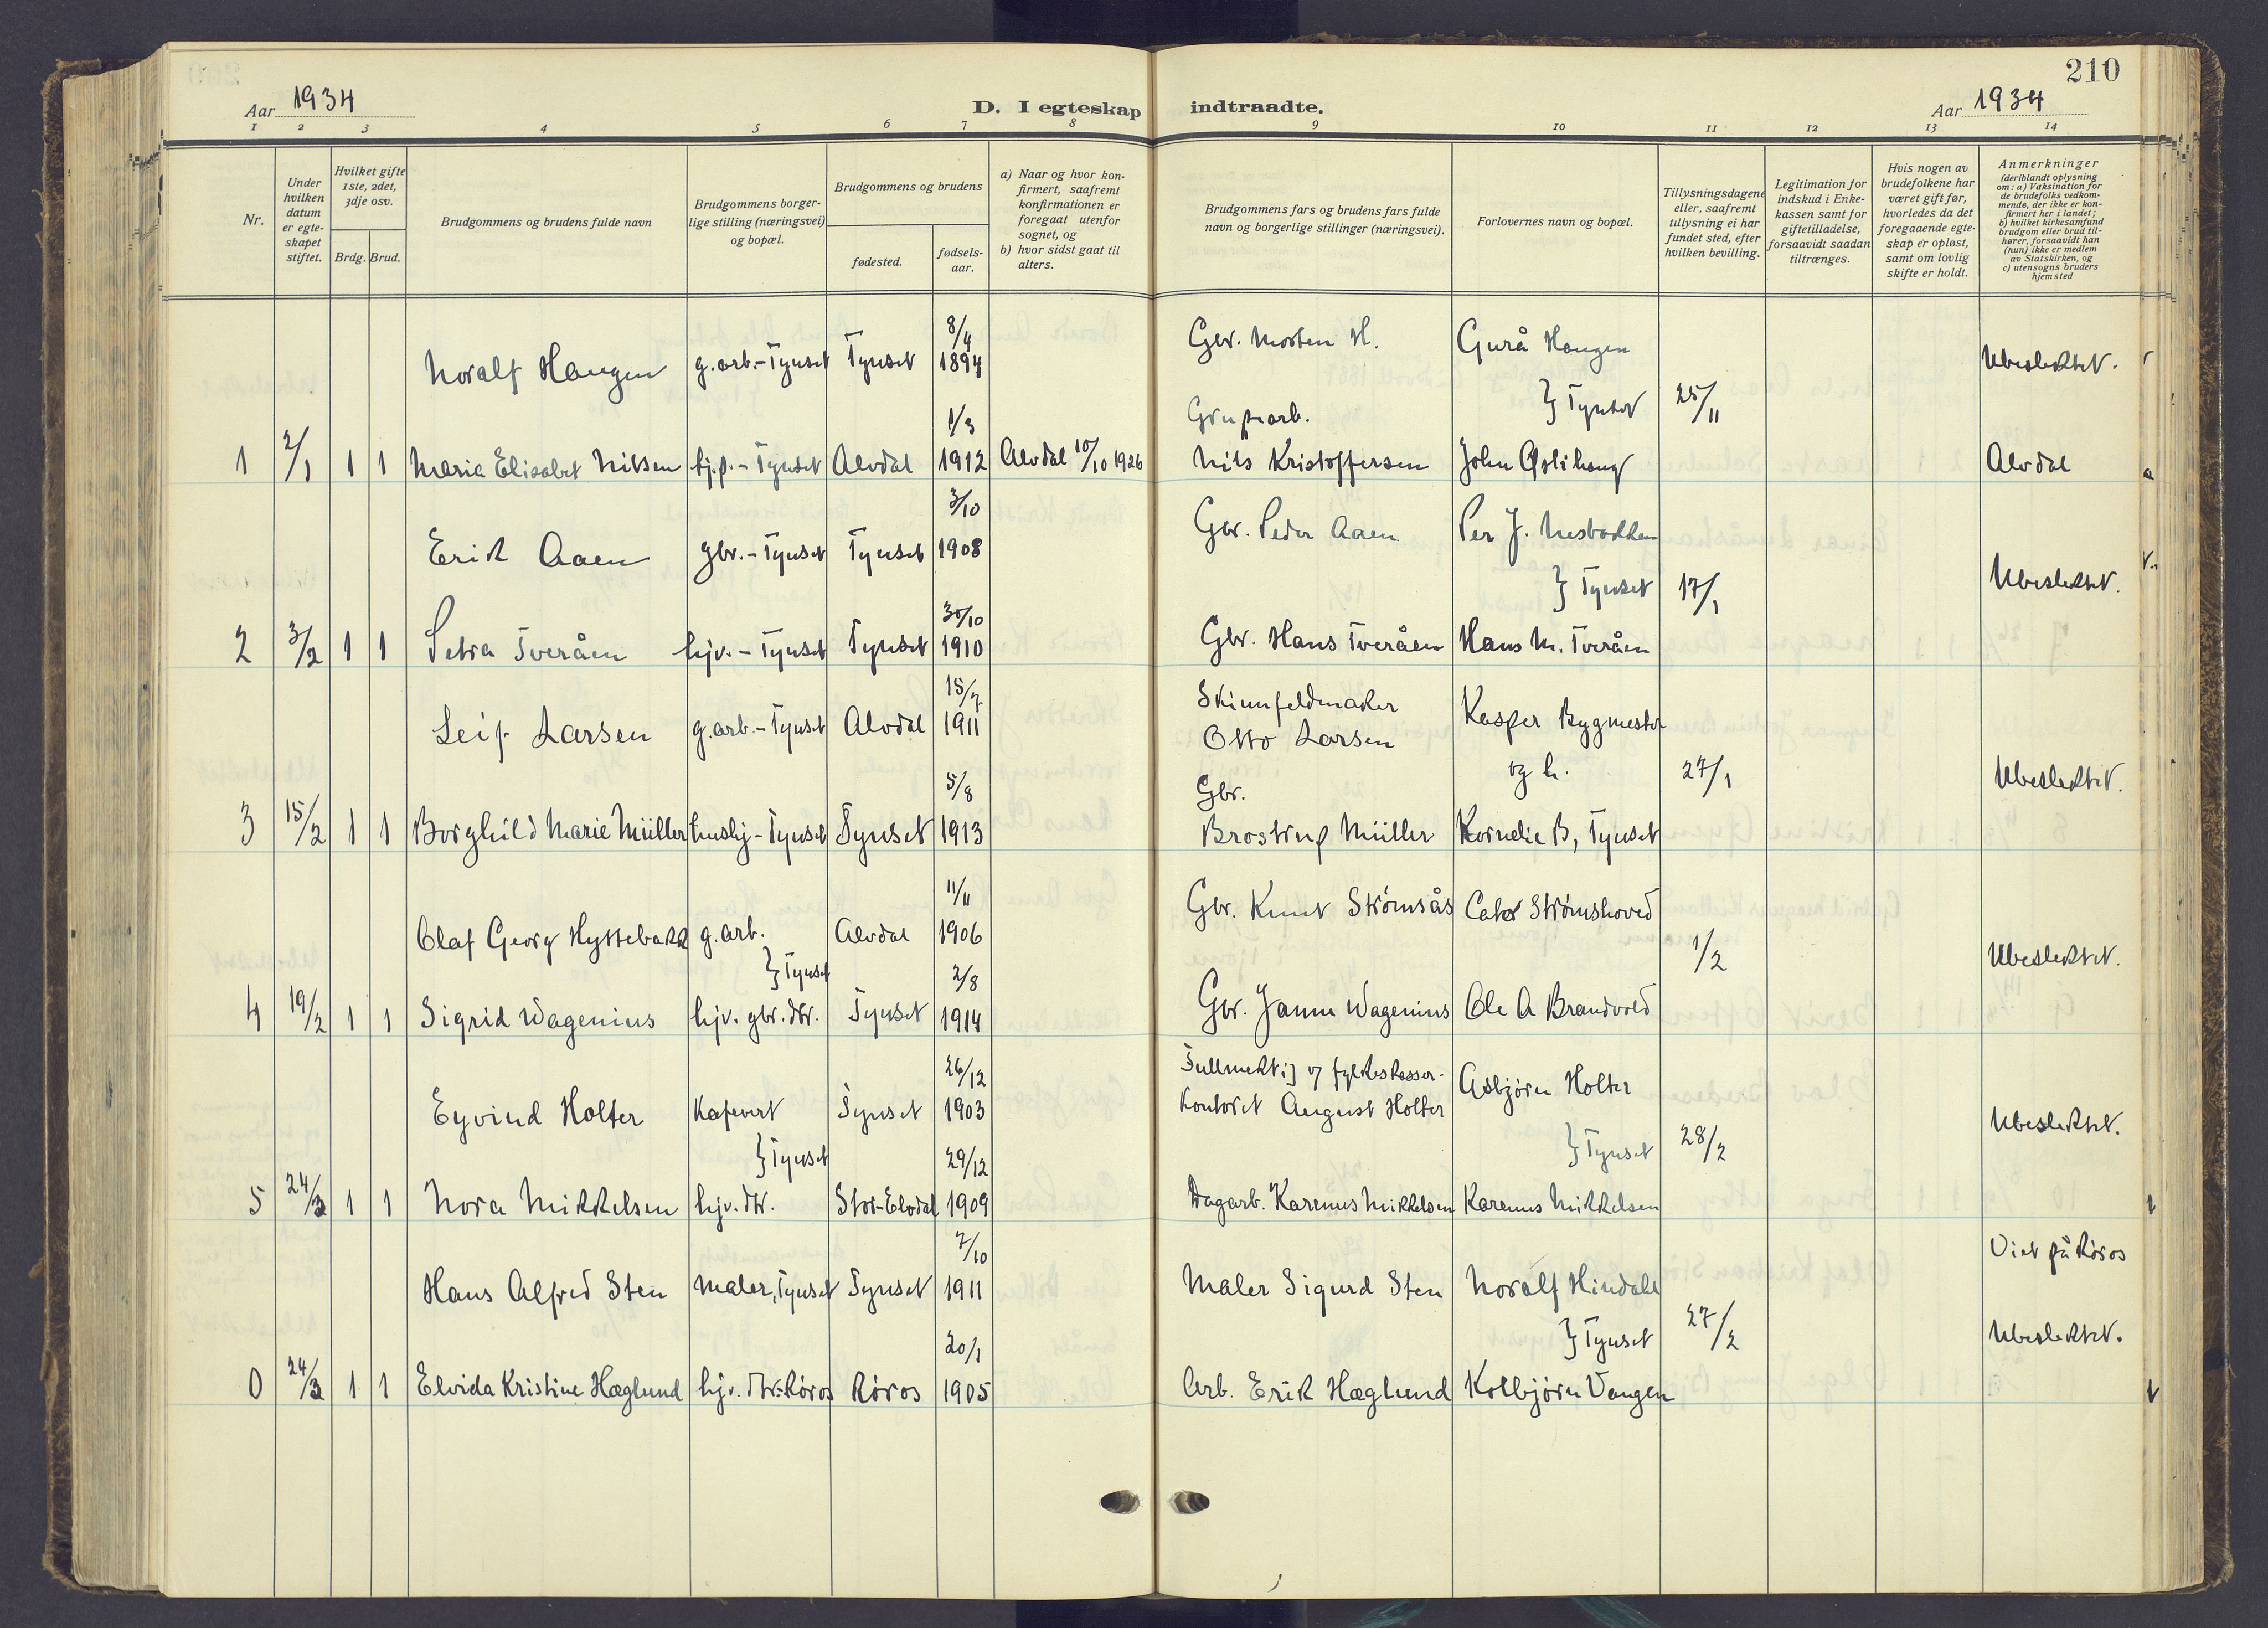 210
Aar 1934
D. I egteskap indtraadte.
Aar 1934
1 2 3 4 5 6 7 8 9 10 11 12 13 14
Nr.
Under hvilken datum er egte-skapet stiftet.
Hvilket gifte 1ste, 2det, 3dje osv.
Brdg. Brud.
Brudgommens og brudens fulde navn
Brudgommens borger-lige stilling (næringsvei) og bopæl.
Brudgommens og brudens
fødested.
fødsels-aar.
a) Naar og hvor kon-firmert, saafremt konfirmationen er foregaat utenfor sognet, og
b) hvor sidst gaat til alters.
Brudgommens fars og brudens fars fulde navn og borgerlige stillinger (næringsvei).
Forlovernes navn og bopæl.
Tillysningsdagene eller, saafremt tillysning ei har fundet sted, efter hvilken bevilling.
Legitimation for indskud i Enke-kassen samt for giftetilladelse, forsaavidt saadan tiltrænges.
Hvis nogen av brudefolkene har været gift før, hvorledes da det foregaaende egte-skap er opløst, samt om lovlig skifte er holdt.
Anmerkninger (deriblandt oplysning om: a) Vaksination for de brudefolks vedkom-mende, der ikke er kon-firmert her i landet; b) hvilket kirkesamfund brudgom eller brud til-hører, forsaavidt han (hun) ikke er medlem av Statskirken, og c) utensogns bruders hjemsted
8/4
Noralf Haugen g.arb.-Tynset Tynset 1894 Gbr. Morten H. Gurå Haugen Ubeslektet.
1/3 Grubearb. } Tynset 25/11
1 2/1 1 1 Marie Elisabet Nilsen hj.p.-Tynset Alvdal 1912 Alvdal 10/10 1926 Nils Kristoffersen John Øslihaug Alvdal
3/10
Erik Aaen gbr.-Tynset Tynset 1908 Gbr. Peder Aaen Per J. Nesbakken
30/10 } Tynset 17/1 Ubeslektet.
2 3/2 1 1 Petra Tveråen hjv.-Tynset Tynset 1910 Gbr. Hans Tveråen Hans M. Tveråen
15/7 Skinnfeldmaker
Leif Larsen g.arb.-Tynset Alvdal 1911 Otto Larsen Kasper Bygmester
5/8 Gbr. og h. 27/1 Ubeslektet.
3 15/2 1 1 Borghild Marie Müller hushj-Tynset Tynset 1913 Brostrup Müller Kornelie B, Tynset
11/11
Olaf Georg Hyttebakk g.arb. Alvdal 1906 Gbr. Knut Strømsås Strømshoved
} Tynset 2/8 1/2 Ubeslektet.
4 19/2 1 1 Sigrid Wagenius hjv. gbr.dtr. Tynset 1914 Gbr. Wagenius Ole A Brandvold
26/12 Fullmektig v fylkeskasser-
Eyvind Holter Kafevert Tynset 1903 kontoret August Holter Asbjørn Holter
} Tynset 29/12 } Tynset 28/2 Ubeslektet.
5 24/3 1 1 Nora Mikkelsen hjv. dtr. Stor-Elvdal 1909 Dagarb. Karenus Mikkelsen Karenus Mikkelsen
7/10 Viet på Røros
Hans Alfred Sten Maler, Tynset Tynset 1911 Maler Sigurd Sten Noralf Hindahl
20/1 } Tynset 27/2 Ubeslektet.
0 24/3 1 1 Elvida Kristine Hæglund hjv. dtr. Røros Røros 1905 Arb. Erik Hæglund Kolbjørn Vangen